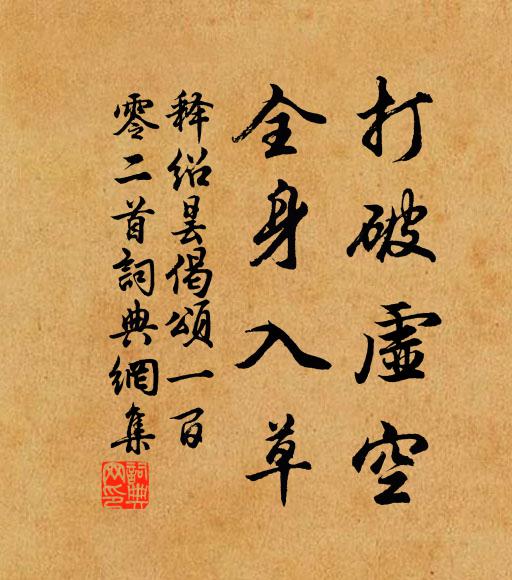 打破虛空
全身入草
释绍昙偈頌一百
零二首詞典網集
詞典網印